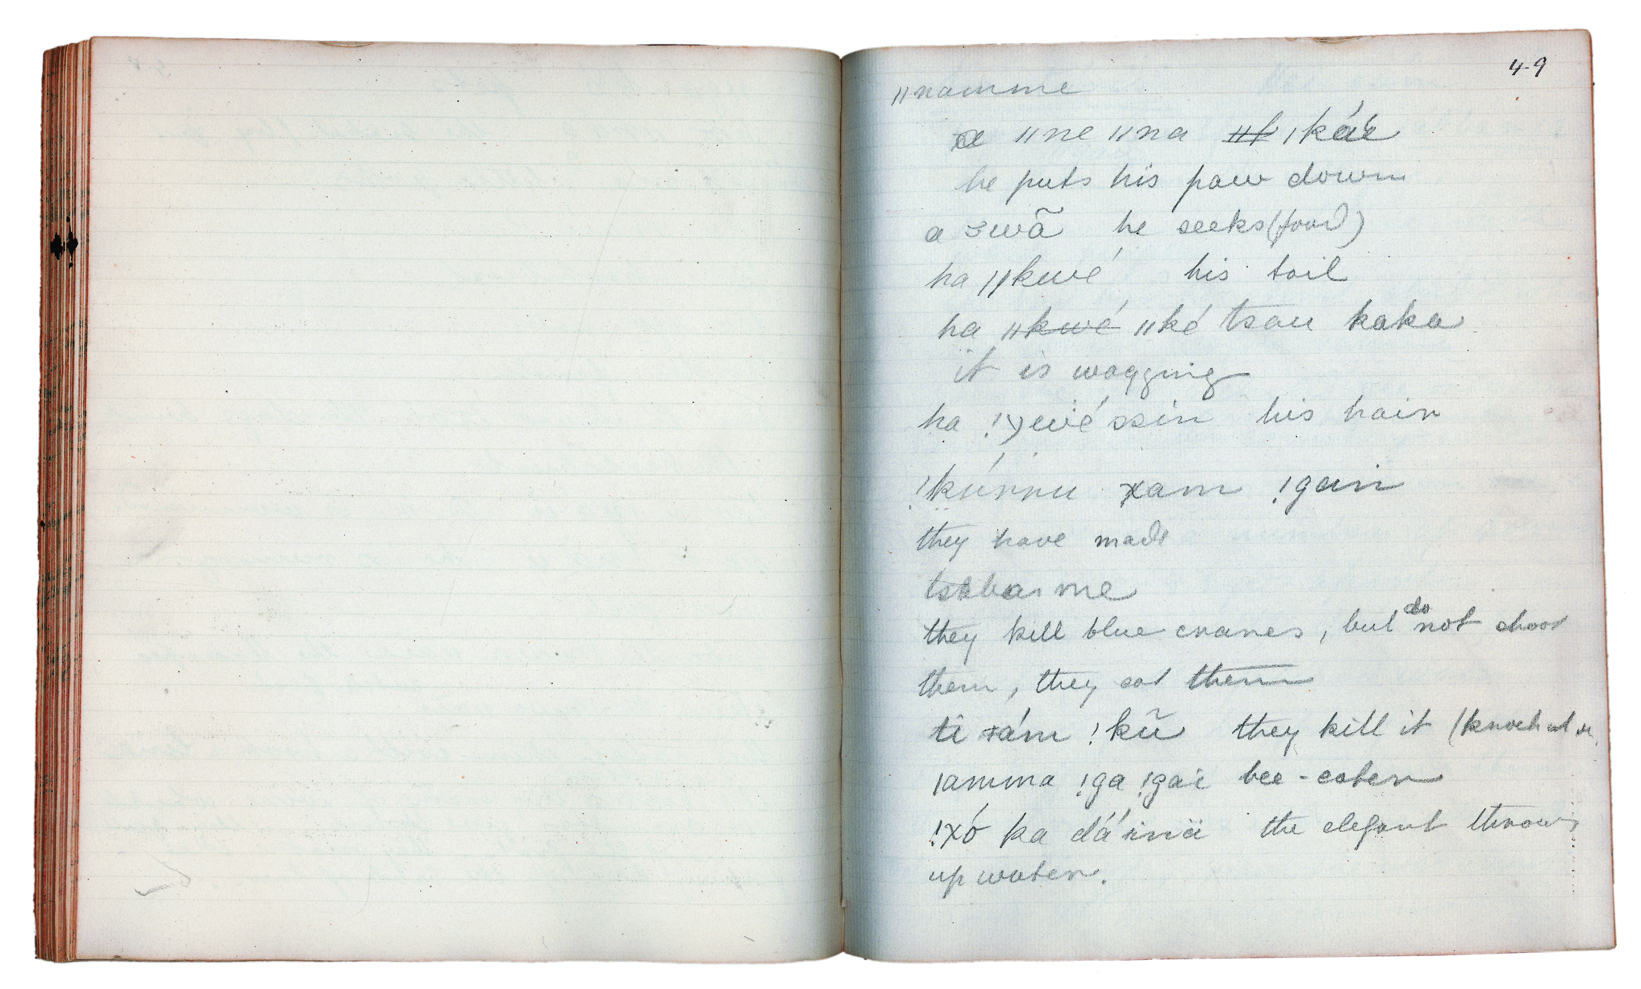 49
ǁnamme
ǁne ǁna ǀkáë
he puts his paw down
a swã he seeks (food)
ha ǁkwé his tail
ha ǁkwé ǁké tsau kaka
it is wagging
ha his hair
!kúnnu xam !gain
they have made
they kill blue cranes, but do not shoot
them, they eat them
ti xám !kũ they kill it (knock
ǀamma !ga !gáë bee-eater
!xó ka dá'inä the elefant throws
up water.